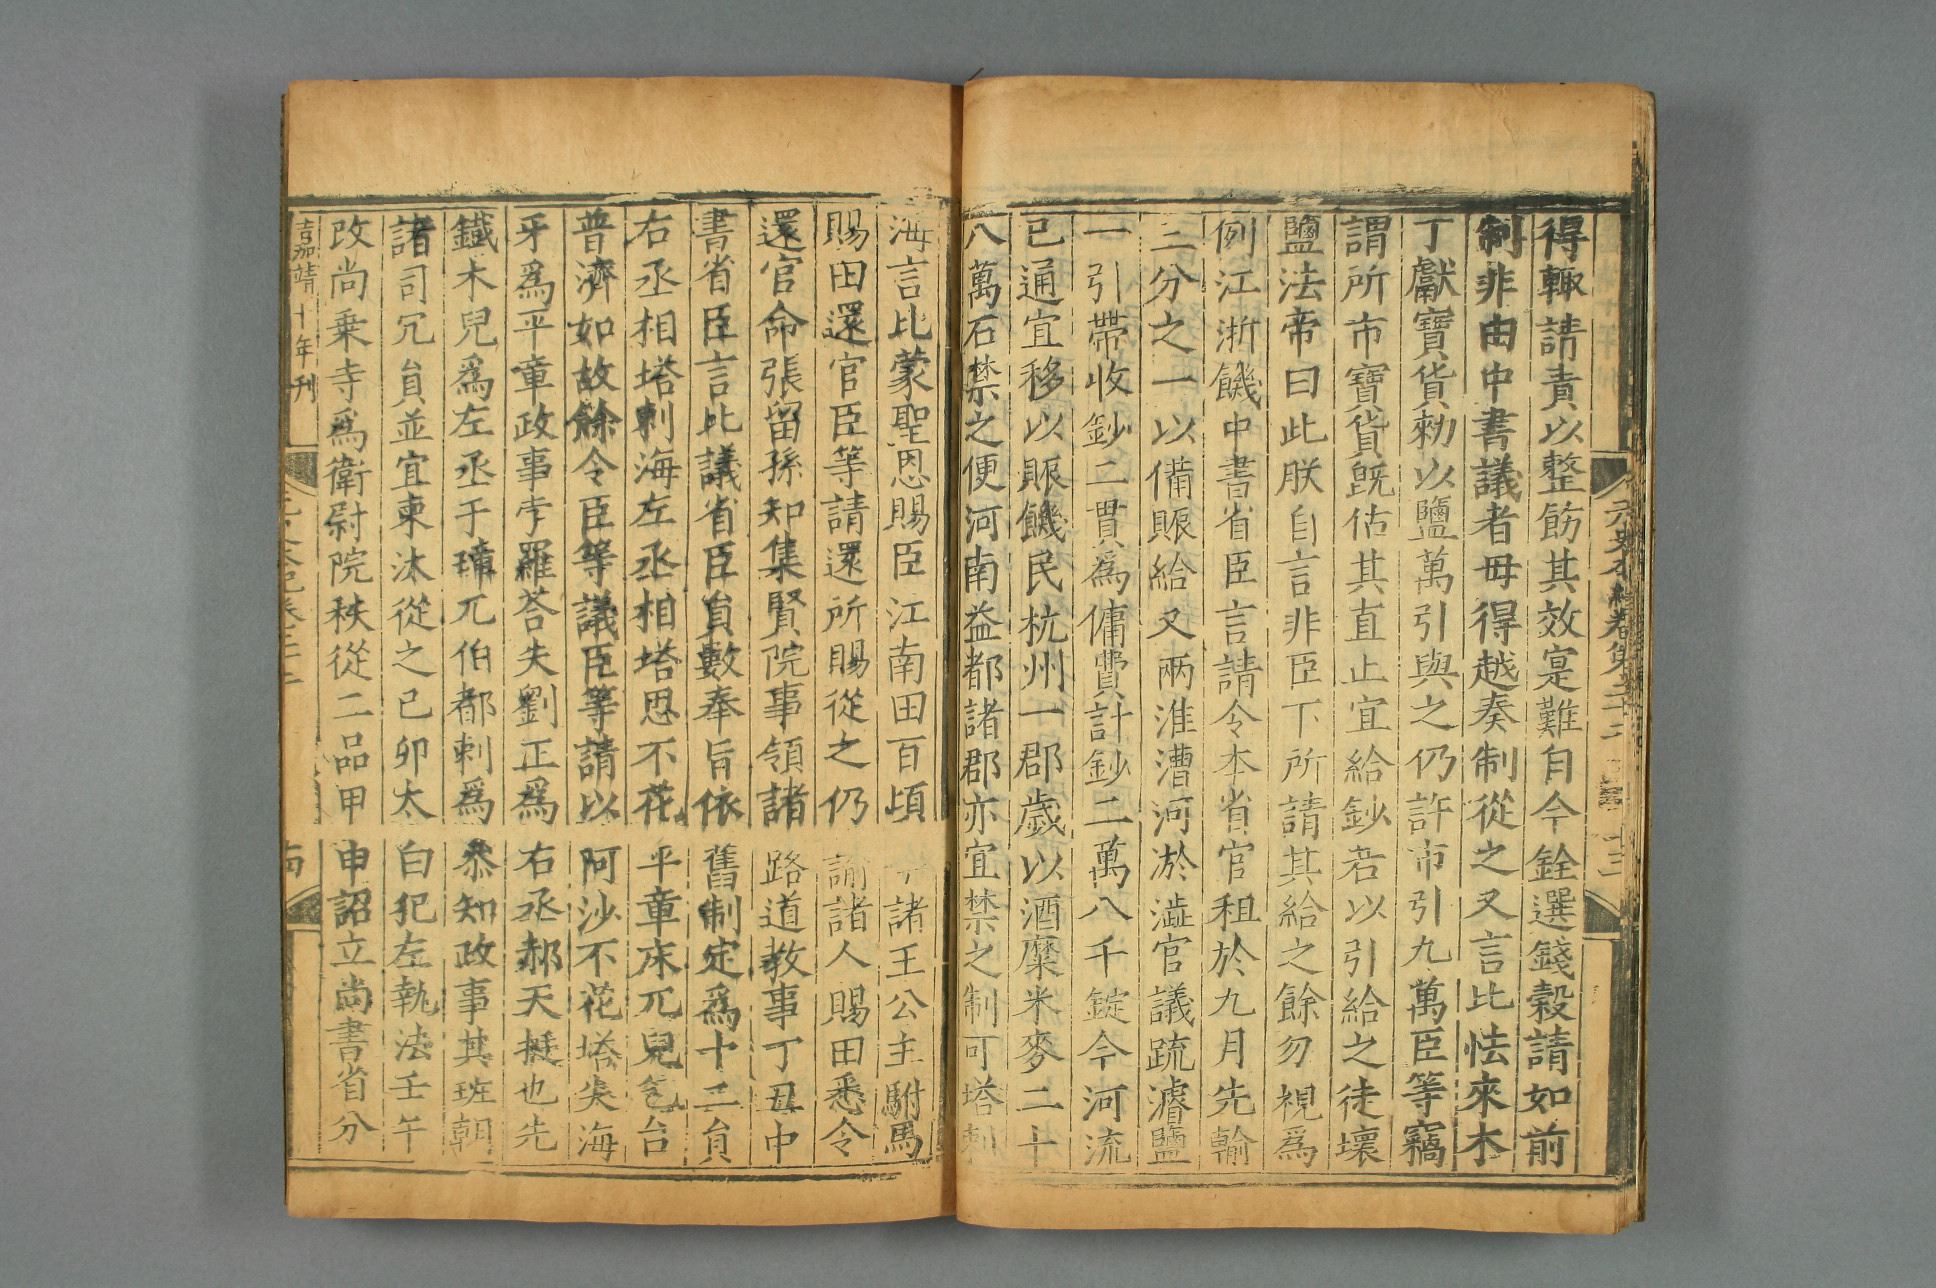 得輙請責以整飭其效寔難自今銓選錢穀請如前
制非由中書議者毋得越奏制從之又言比怯來木
丁獻寶貨勑以鹽萬引與之仍許市引九萬臣等竊
謂所市寶貨旣估其直止宜給鈔若以引給之徒壞
鹽法帝曰此朕自言非臣下所請其給之餘勿視爲
例江浙饑中書省臣言請令本省官租於九月先輸
三分之一以備賑給又兩淮漕河淤澁官議疏濬鹽
一引帶收鈔二貫爲傭費計鈔二萬八千錠今河流
已通宜移以賑饑民杭州一郡歲以酒糜米麥二十
八萬石禁之便河南益都諸郡亦宜禁之制可塔剌
海言比蒙聖恩賜臣江南田百頃諸王公主駙馬
賜田還官臣等請還所賜從之仍諭諸人賜田悉令
還官命張留孫知集賢院事領諸路道教事丁丑中
書省臣言比議省臣員數奉旨依舊制定爲十二員
右丞相塔剌海左丞相塔思不花平章床兀兒乞台
普濟如故餘令臣等議臣等請以阿沙不花塔失海
牙爲平章政事孛羅荅失劉正爲右丞郝天挺也先
鐵木兒爲左丞于璋兀伯都剌爲叅知政事其班朝
諸司冗員並宜柬汰從之己卯太白犯左執法壬午
改尚乗寺爲衛尉院秩從二品甲申詔立尚書省分
嘉靖十年刊